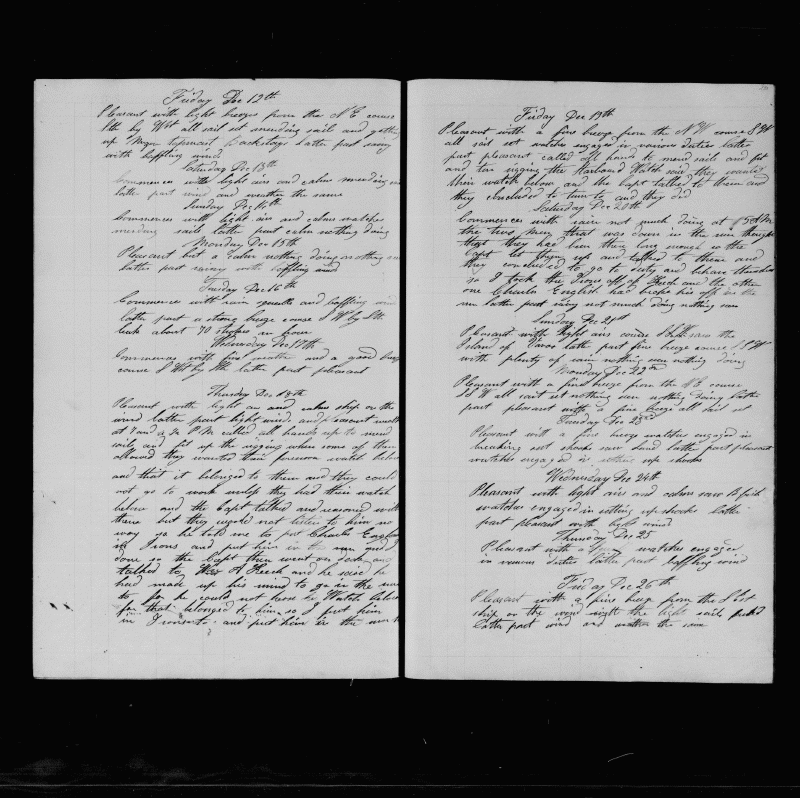 Friday Dec 12th
Pleasant with light breezes from the N E course
Sth by West all sail set mending sails and getting
up Mizen Topmast Backstays latter part rainy
with baffling winds
Saturday Dec 13th
Commences with light airs and calms mending
latter part wind and weather the same
Sunday Dec 14th
Commences with light airs and calms watches
mending sails latter part calm nothing doing
Monday Dec 15th
Pleasant but a calm nothing doing nothing
latter part rainy with baffling wind
Tuesday Dec 16th
Commence with rain squalls and baffling wind
latter part a strong breeze course S W by Sth
leak about 70 strokes an hour
Wednesday Dec 17th
Commences with fine weather and a good breeze
course S Wst by Sth latter part pleasant
Thursday Dec 18th
Pleasant with light air and calms ship on the
wind latter part light winds and pleasant weather
at 1 and a 1/2 P M called all hands up to mend
sails and fit up the rigging where some of them
allowed they wanted their forenoon watch below
and that it belonged to them and they could
not go to work unless they had their watch
below and the Capt talked and reasoned with
them but they would not listen to him no
way so he told me to put Charles England
in Irons and put him in the run and I
done so the Capt then went on deck and
talked to Wm A Heech and he said he
had made up his mind to go in the run
to for he could not have his Watch below
for that belonged to him so I put him
in Irons to and put him in the run
Friday Dec 19th
Pleasant with a fine breeze from the N W course S W
all sail set watches engaged in various duties latter
part pleasant called all hands to mend sails and fit
and tar rigging the Starboard Watch said they wanted
their watch below and the Capt talked to them and
they concluded to turn to and they did
Saturday Dec 20th
Commences with rain not much doing at 5 A M
the two men that was down in the run thought
that they had been there long enough so the
Capt let them up and talked to them and
they concluded to go to duty and behave themselves
so I took the Irons off of Heech and the other
one Charles England had broke his off in the
run latter part rainy not much doing nothing seen
Sunday Dec 21st
Pleasant with light airs course S W saw the
Island of latter part fine breeze course S S W
with plenty of rain nothing seen nothing doing
Monday Dec 22nd
Pleasant with a fine breeze from the S E course
S S W all sail set nothing seen nothing doing latter
part pleasant with a fine breeze all sail set
Tuesday Dec 23rd
Pleasant with a fine breeze watches engaged in
breaking out shooks saw land latter part pleasant
watches engaged in setting up shooks
Wednesday Dec 24th
Pleasant with light airs and calms saw B fish
watches engaged in setting up shooks latter
part pleasant with light wind
Thursday Dec 25
Pleasant with a watches engaged
in various duties latter part baffling wind
Friday Dec 26th
Pleasant with a fine breeze from the S Est
ship on the wind with the light sails furled
latter part wind and weather the same